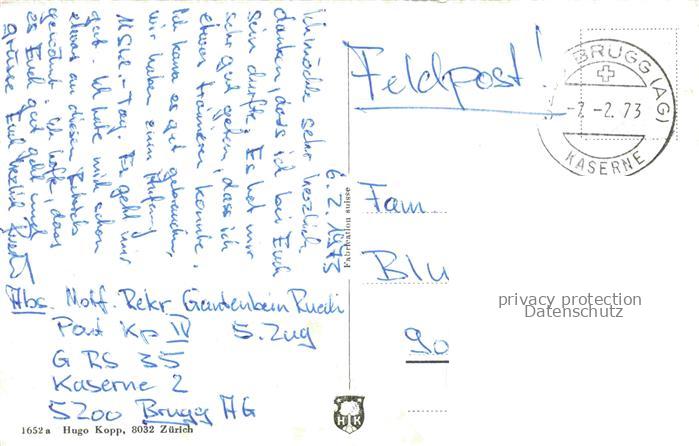 6.2.1973
Ich möchte sehr herzlich
danken, dass ich bei Euch
sein durfte. Es hat mir
sehr gut getan, dass ich
etwas träumen konnte.
Ich kann es gut gebrauchen,
wir haben zum Anfang
Std.-Tag. Es geht mir
gut. Ich habe mich schon
etwas an diesen Betrieb
gewöhnt. Ich hoffe, dass
es Euch gut geht und
grüsse Euch herzlich Ruedi
Abs. Motf. Rekr. Gantenbein Ruedi
Post Kp IV 5. Zug
G RS 35
Kaserne 2
5200 Brugg AG
1652 a Hugo Kopp, 8032 Zürich
Fabrication suisse
HK
Feldpost!
BRUGG (AG)
-7.-2.73
KASERNE
Fam
Blu
90
privacy protection
Datenschutz